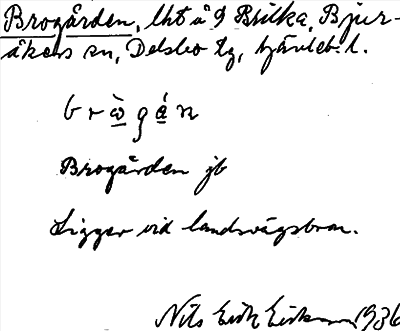 Brogården, lht å g Brilka, Bjur-
åkers sn, Delsbo tg, Gävleb. l.
b r ò̲ g á̲ n
Brogården jb
Ligger vid landsvägsbron.
Nils Erik Eriksson 1936